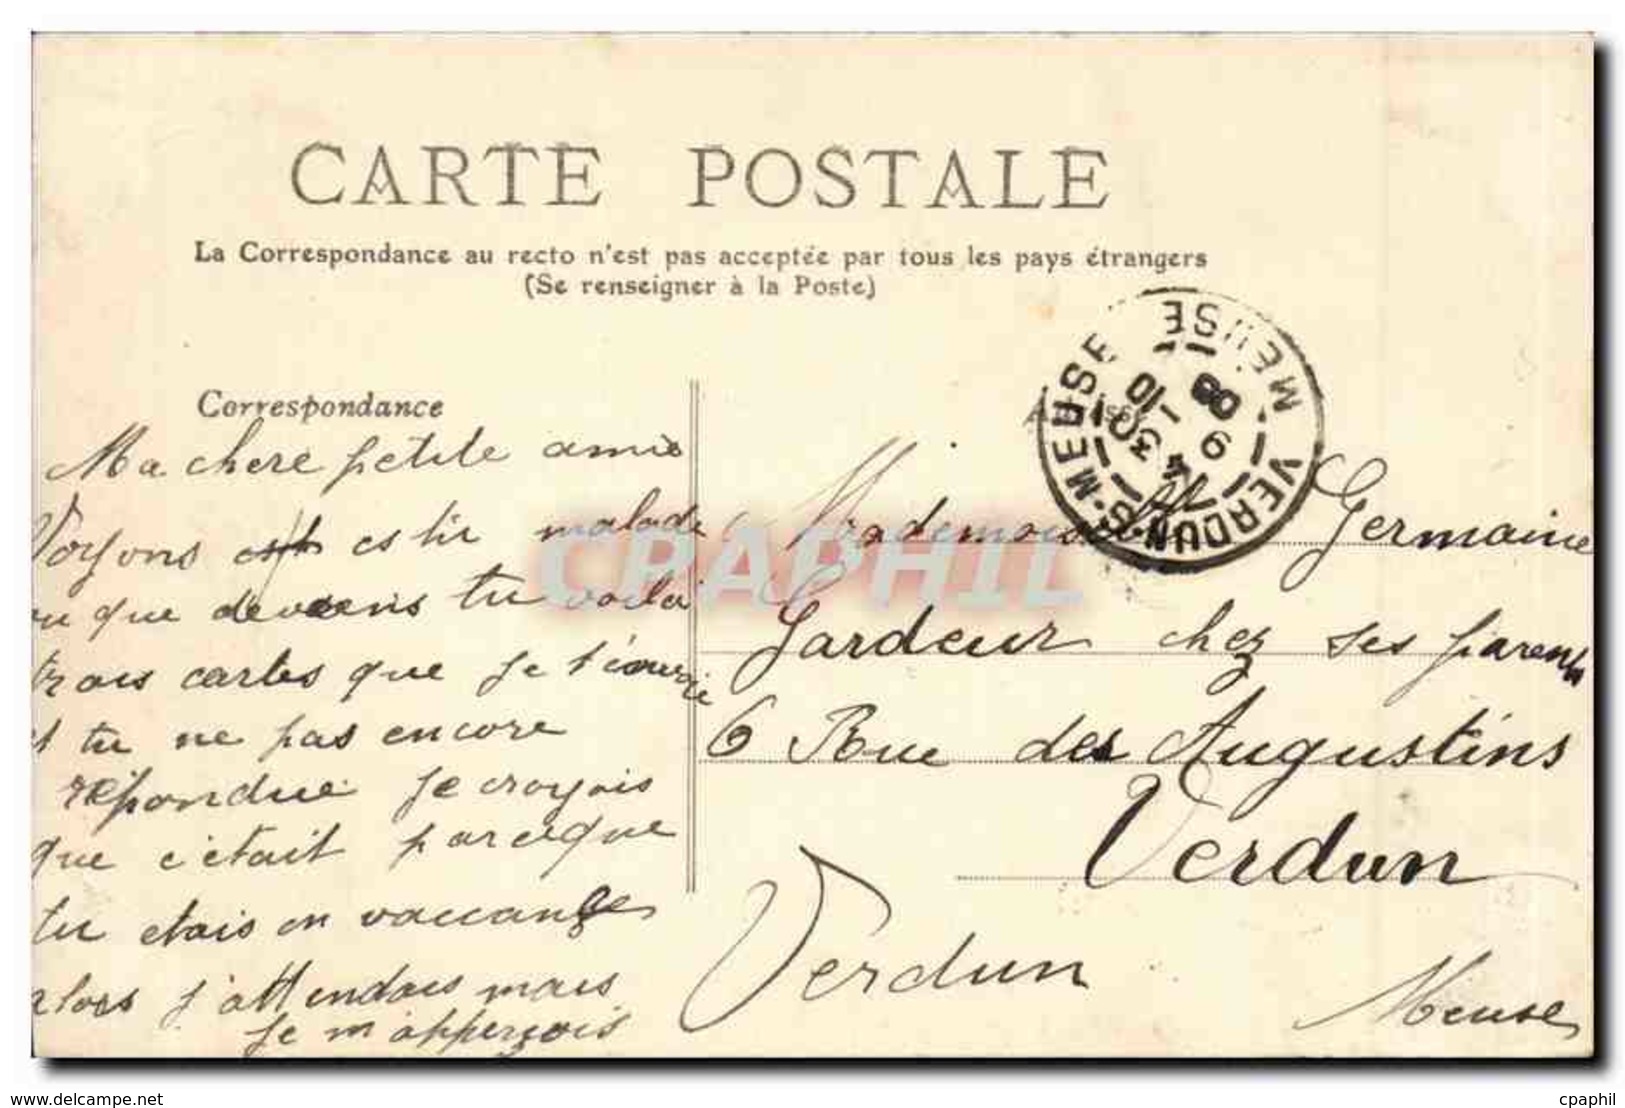 CARTE POSTALE
La Correspondance au recto n'est pas acceptée par tous les pays étrangers
(Se renseigner à la Poste)
Correspondance
Ma chere petite amie
Voyons es tu malade
ou que deviens tu voila
trois cartes que je t'écrie
et tu ne pas encore
répondue je croyais
que c'était parceque
tu etais en vaccances
alors j'attendais mais
je m'apperçois
VERDUN-S-MEUSE MEUSE
14 30
9 -10
08
Mademoiselle Germaine
Gardeur chez ses parents
6 Rue des Augustins
Verdun
Verdun
Meuse
CPAPHIL
www.delcampe.net
cpaphil